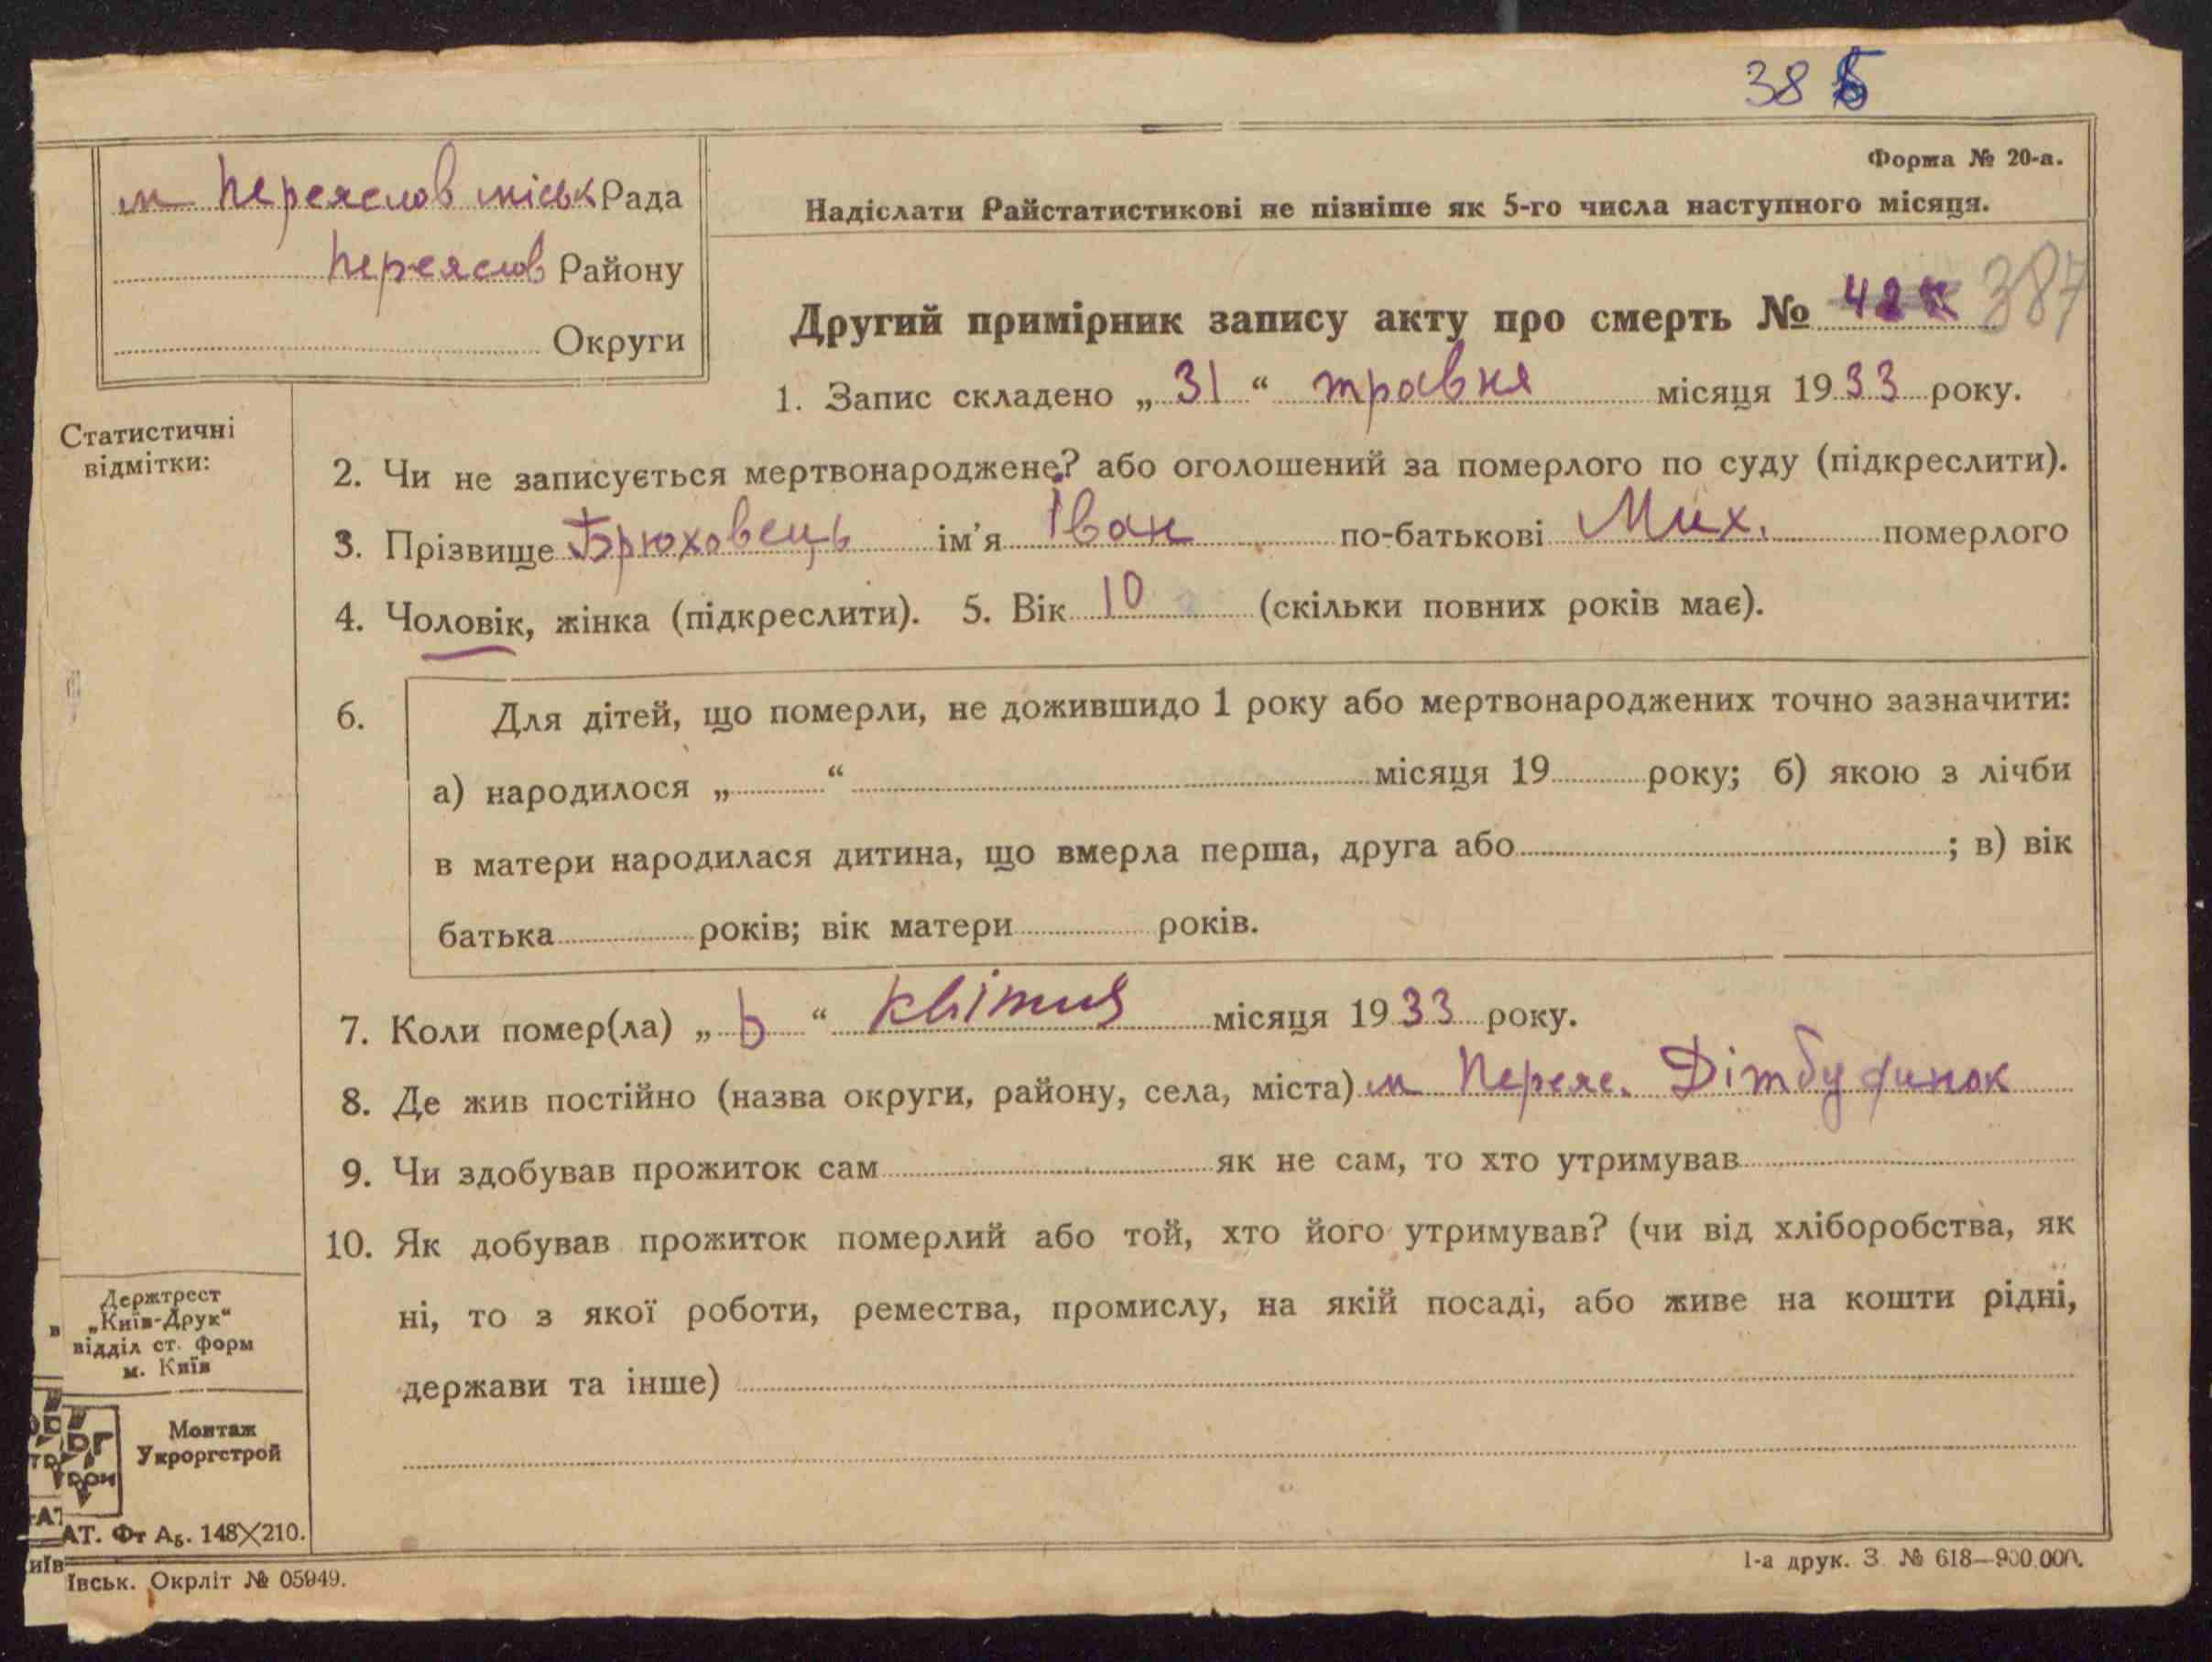 38
Форма № 20-а.
м Переяслов міськ Рада
Надіслати Райстатистикові не пізніше як 5-го числа наступного місяця.
Переяслов Району
Округи
Другий примірник запису акту про смерть № 387
1. Запис складено „31“ травня місяця 1933 року.
Статистичні
відмітки:
2. Чи не записується мертвонароджене? або оголошений за померлого по суду (підкреслити).
3. Прізвище Брюховець ім’я Іван по-батькові Мих. померлого
4. Чоловік, жінка (підкреслити). 5. Вік 10 (скільки повних років має).
6. Для дітей, що померли, не дожившидо 1 року або мертвонароджених точно зазначити:
а) народилося „ “ місяця 19 року; б) якою з лічби
в матери народилася дитина, що вмерла перша, друга або ; в) вік
батька років; вік матери років.
7. Коли помер(ла) „ “ квітня місяця 1933 року.
8. Де жив постійно (назва округи, району, села, міста) м Переяс. Дітбудинок
9. Чи здобував прожиток сам як не сам, то хто утримував
10. Як добував прожиток померлий або той, хто його утримував? (чи від хліборобства, як
ні, то з якої роботи, ремества, промислу, на якій посаді, або живе на кошти рідні,
держави та інше)
Держтрест
„Київ-Друк“
відділ ст. форм
м. Київ
Монтаж
Укроргстрой
АТ. Фт А₅. 148×210.
ївськ. Окрліт № 05949.
1-а друк. З. № 618—900.000.